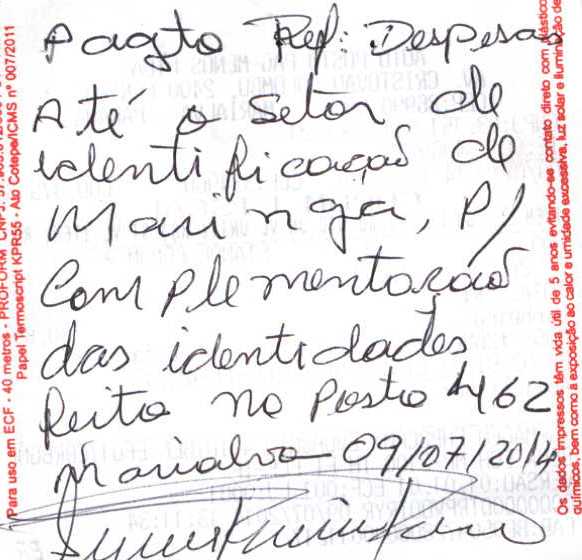 Pagto Ref: Despesas
Até o setor de
identificação de
Maringá, P/
Complementação
das identidades
feita no Posto 462
Marialva 09/07/2014
Para uso em ECF - 40 metros - PROFORM CNPJ:
Papel Termoscript KPR55 - Ato Cotepe/ICMS nº 007/2011
Os dados impressos têm vida útil de 5 anos evitando-se contato direto com plástico
químicos, bem como a exposição ao calor e umidade excessiva, luz solar e iluminação de